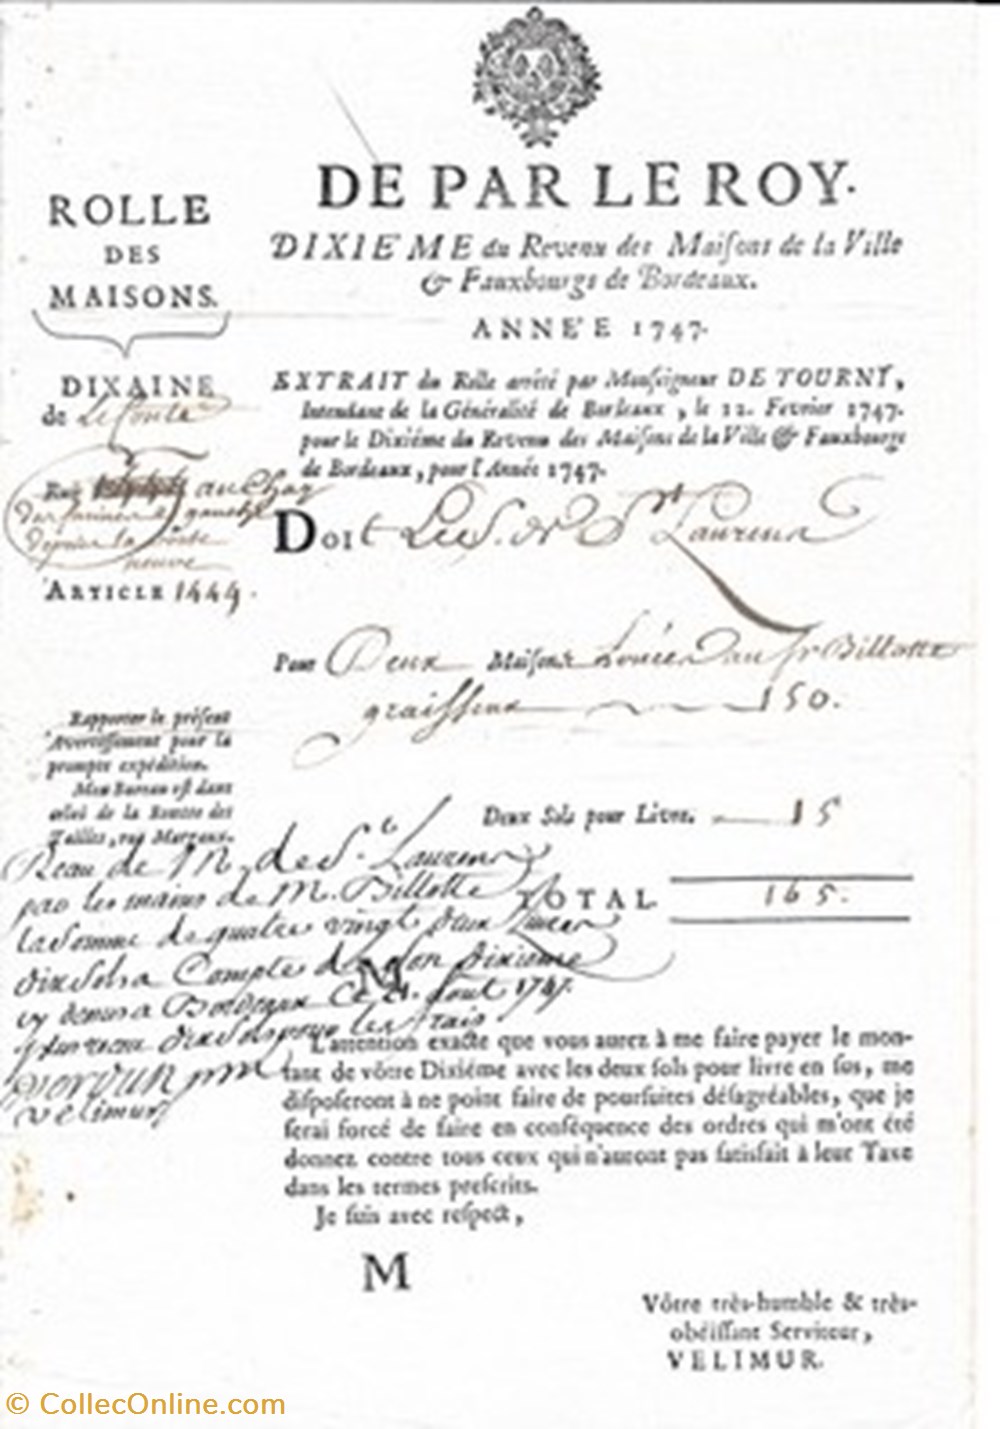 DE PAR LE ROY.
DIXIE'ME du Revenu des Maisons de la Ville
& Fauxbourgs de Bordeaux.
ANNE'E 1747.
EXTRAIT du Rolle arrêté par Monseigneur DE TOURNY,
Intendant de la Généralité de Bordeaux, le 12. Fevrier 1747.
pour le Dixiéme du Revenu des Maisons de la Ville & Fauxbourgs
de Bordeaux, pour l'Année 1747.
ROLLE
DES
MAISONS.
DIXAINE
de Le Comte
Rue au Chay
des farines
depuis la porte
neuve
ARTICLE 1444.
Doit Le S. de St Laurens
Pour Deux Maisons Louées au Sr Billotte
graisseux 150.
Rapporter le présent
Avertissement pour la
prompte expédition.
Mon Bureau est dans
celui de la Recette des
Tailles, rue Margaux.
Deux Sols pour Livre. 15
TOTAL 165.
Reçu de M. de St Laurens
par les mains de M. Billotte
la Somme de quatre vingt deux Livres
dix sols a Compte de son dixieme
a Bordeaux Ce 21. Aout 1747.
dix sols pour les frais
verdun pr m
velimur
M
L'attention exacte que vous aurez à me faire payer le mon-
tant de vôtre Dixiéme avec les deux sols pour livre en sus, me
disposeront à ne point faire de poursuites désagréables, que je
serai forcé de faire en conséquence des ordres qui m'ont été
donnez contre tous ceux qui n'auront pas satisfait à leur Taxe
dans les termes prescrits.
Je suis avec respect,
M
Vôtre très-humble & très-
obéissant Serviteur,
VELIMUR.
© CollecOnline.com